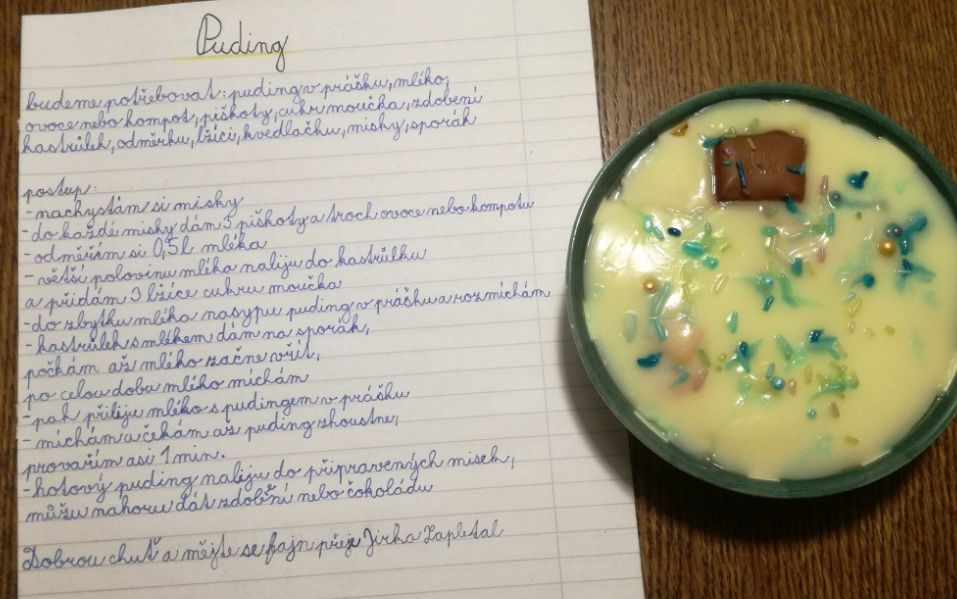 Puding
budeme potřebovat: puding v prášku, mléko,
ovoce nebo kompot, piškoty, cukr moučka, zdobení
kastrůlek, odměrku, lžíci, kvedlačku, misky, sporák
postup:
- nachystám si misky
- do každé misky dám 5 piškoty a troch ovoce nebo kompotu
- odměřím si 0,5 l mléka
- větší polovinu mléka naliju do kastrůlku
a přidám 3 lžíce cukru moučka
- do zbytku mléka nasypu puding v prášku a rozmíchám
- kastrůlek s mlékem dám na sporák,
počkám až mléko začne vřít,
po celou dobu mléko míchám
- pak přiliju mléko s pudingem v prášku
- míchám a čekám až puding zhoustne,
provařím asi 1 min.
- hotový puding naliju do připravených misek,
můžu nahoru dát zdobění nebo čokoládu
Dobrou chuť a mějte se fajn přeje Jirka Zapletal